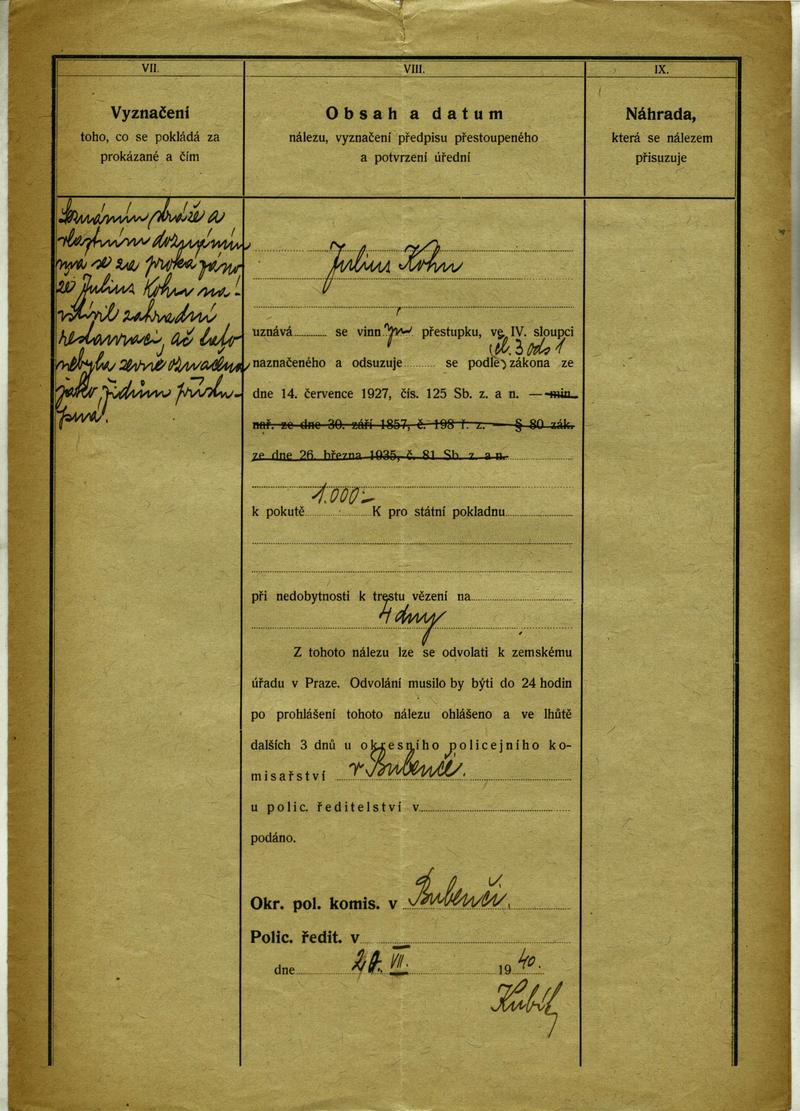 VII.
Vyznačení
toho, co se pokládá za
prokázané a čím
a
vlastním doznáním
má se za
že Julius Kohn na-
vštívil zahradní
restauraci, ač tato
nebyla
jako židům přístu-
pná.
VIII.
Obsah a datum
nálezu, vyznačení předpisu přestoupeného
a potvrzení úřední
Julius Kohn
uznává se vinným přestupku, ve IV. sloupci
čl. 3 ods 1
naznačeného a odsuzuje se podle zákona ze
dne 14. července 1927, čís. 125 Sb. z. a n. — min.
nař. ze dne 30. září 1857, č. 198 ř. z. — § 80 zák.
ze dne 26. března 1935, č. 81 Sb. z. a n.
1.000.-
k pokutě K pro státní pokladnu
při nedobytnosti k trestu vězení na
4 dny
Z tohoto nálezu lze se odvolati k zemskému
úřadu v Praze. Odvolání musilo by býti do 24 hodin
po prohlášení tohoto nálezu ohlášeno a ve lhůtě
dalších 3 dnů u okresního policejního ko-
misařství v Bubenči.
u polic. ředitelství v
podáno.
Okr. pol. komis. v Bubenči.
Polic. ředit. v
dne VII. 1940.
IX.
Náhrada,
která se nálezem
přisuzuje